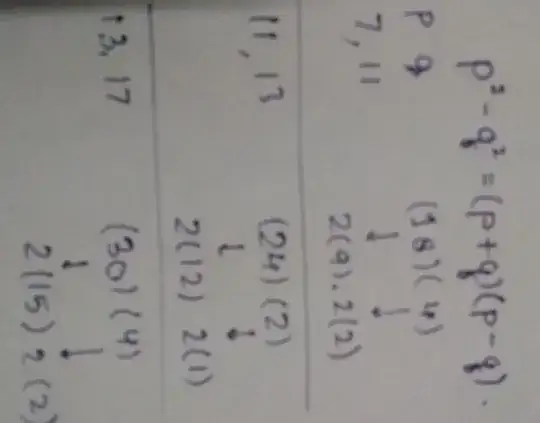 p² - q² = (p+q)(p-q).
p q
7, 11 (18)(4)
↓ ↓
2(9).2(2)
11, 13 (24)(2)
↓ ↓
2(12) 2(1)
13, 17 (30)(4)
↓ ↓
2(15) 2(2)